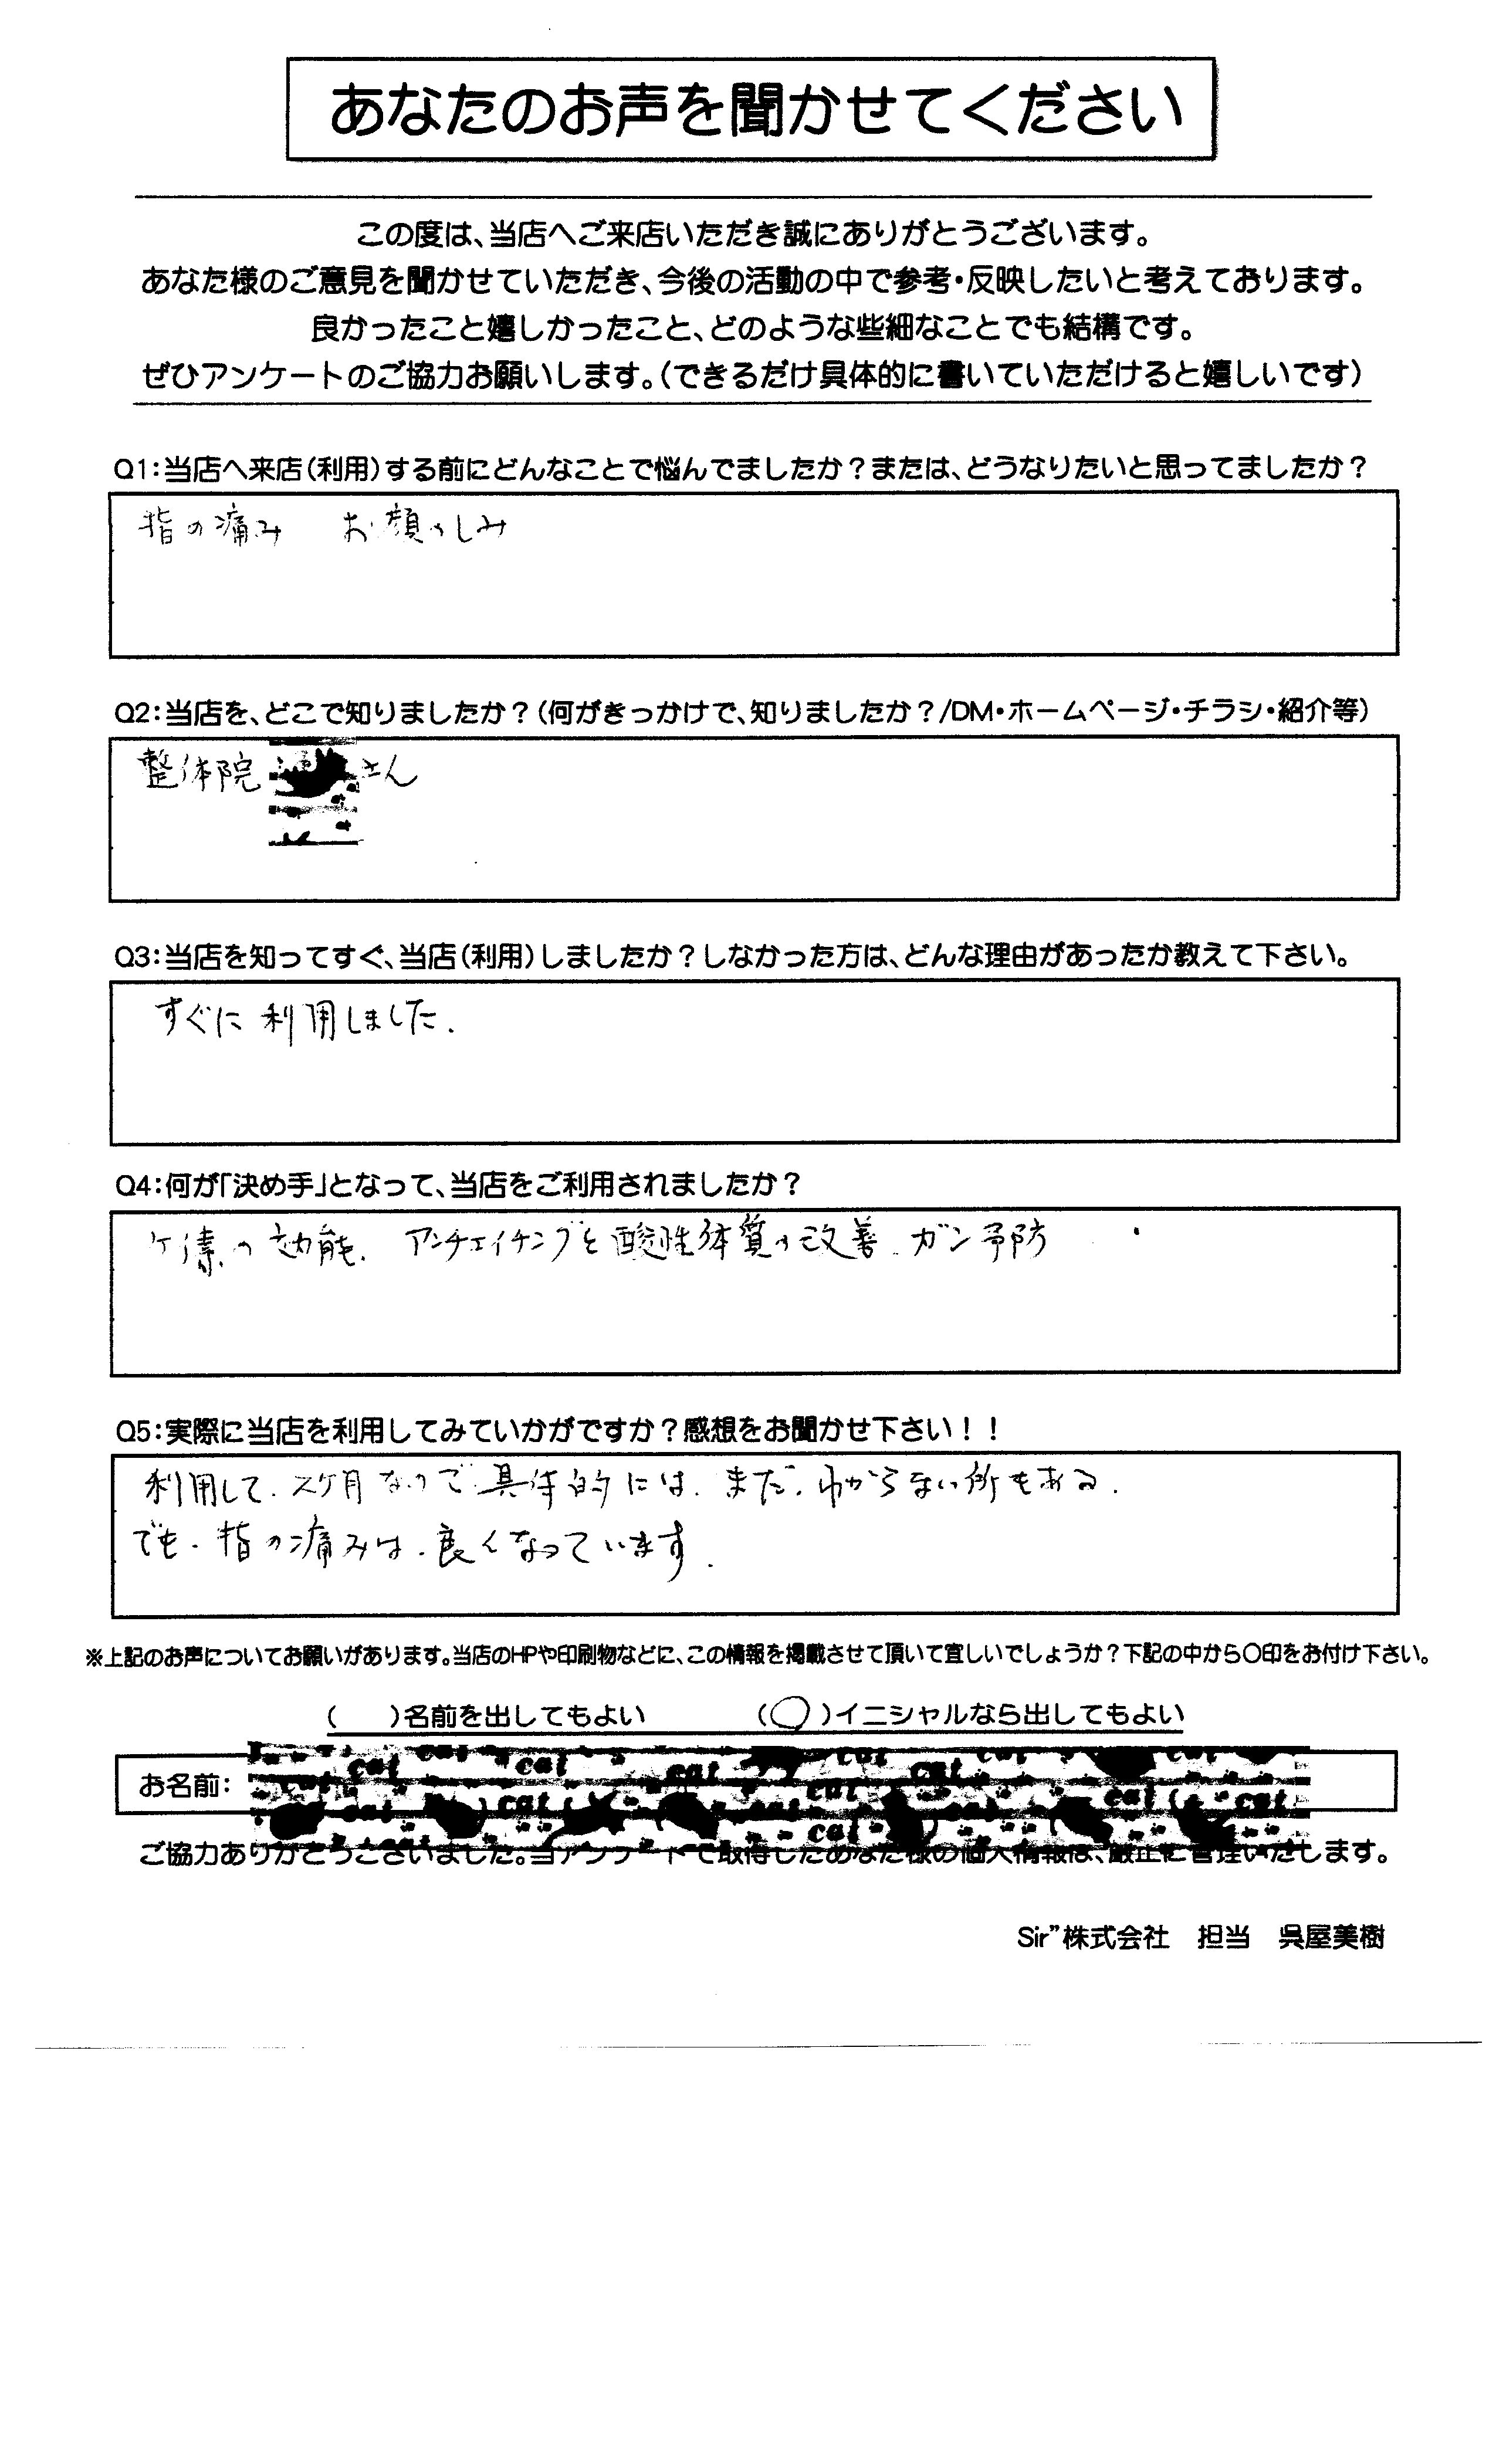 あなたのお声を聞かせてください
この度は、当店へご来店いただき誠にありがとうございます。
あなた様のご意見を聞かせていただき、今後の活動の中で参考・反映したいと考えております。
良かったこと嬉しかったこと、どのような些細なことでも結構です。
ぜひアンケートのご協力お願いします。(できるだけ具体的に書いていただけると嬉しいです)
Q1:当店へ来店(利用)する前にどんなことで悩んでましたか?または、どうなりたいと思ってましたか?
指の痛み お顔のしみ
Q2:当店を、どこで知りましたか?(何がきっかけで、知りましたか?/DM・ホームページ・チラシ・紹介等)
整体院 さん
Q3:当店を知ってすぐ、当店(利用)しましたか?しなかった方は、どんな理由があったか教えて下さい。
すぐに利用しました.
Q4:何が「決め手」となって、当店をご利用されましたか?
ケイ素の効能. アンチェイチングと酸性体質の改善. ガン予防
Q5:実際に当店を利用してみていかがですか?感想をお聞かせ下さい!!
利用して.2ケ月なので具体的には.まだ.わからない所もある.
でも.指の痛みは.良くなっています.
※上記のお声についてお願いがあります。当店のHPや印刷物などに、この情報を掲載させて頂いて宜しいでしょうか?下記の中から〇印をお付け下さい。
( )名前を出してもよい (〇)イニシャルなら出してもよい
お名前:
cat cat cat cat cat cat cat cat cat cat cat
ご協力ありがとうございました。当アンケートで取得したあなた様の個人情報は、厳正に管理いたします。
Sir”株式会社 担当 呉屋美樹